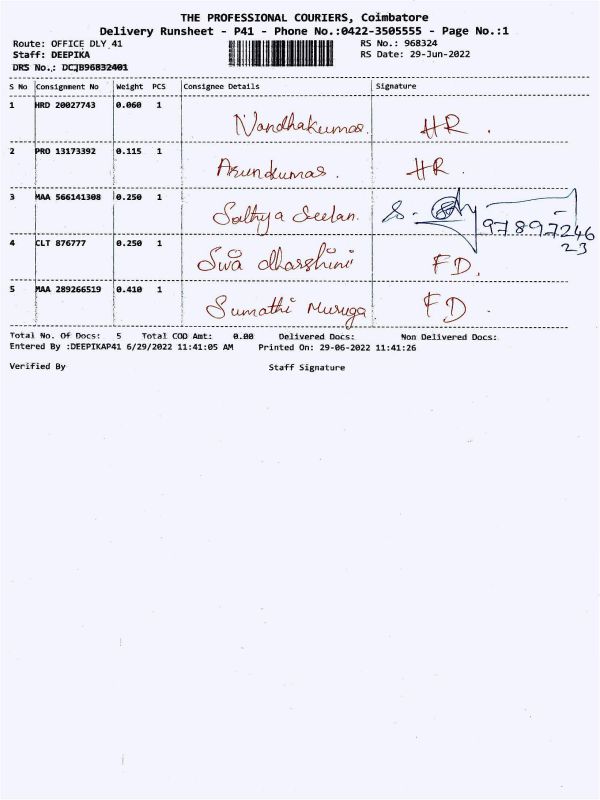 THE PROFESSIONAL COURIERS, Coimbatore
Delivery Runsheet - P41 - Phone No.:0422-3505555 - Page No.:1
Route: OFFICE DLY 41 RS No.: 968324
Staff: DEEPIKA RS Date: 29-Jun-2022
DRS No.: DCJB96832401
S No Consignment No Weight PCS Consignee Details Signature
1 HRD 20027743 0.060 1 Nandhakumar. HR.
2 PRO 13173392 0.115 1 Arunkumar. HR.
3 MAA 566141308 0.250 1 Sathya Seelan. S. 97897246
23
4 CLT 876777 0.250 1 Siva dharshini FD.
5 MAA 289266519 0.410 1 Sumathi Muruga FD.
Total No. Of Docs: 5 Total COD Amt: 0.00 Delivered Docs: Non Delivered Docs:
Entered By :DEEPIKAP41 6/29/2022 11:41:05 AM Printed On: 29-06-2022 11:41:26
Verified By Staff Signature